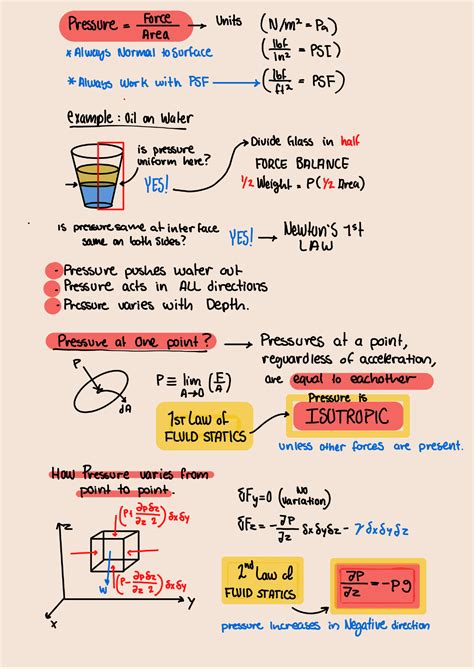 Pressure = Force / Area → Units (N/m² = Pa)
* Always Normal to Surface (lbf/in² = PSI)
* Always Work with PSF → (lbf/ft² = PSF)
Example: Oil on Water
is pressure uniform here?
YES!
Divide Glass in half
FORCE BALANCE
1/2 Weight = P(1/2 Area)
Is pressure same at interface
same on both sides?
YES! → Newton's 1st
LAW
Pressure pushes water out
Pressure acts in ALL directions
Pressure varies with Depth.
Pressure at One point? → Pressures at a point,
reguardless of acceleration,
are equal to eachother
P
dA
P ≡ lim A→0 (F/A)
1st Law of
FLUID STATICS
Pressure is
ISOTROPIC
unless other forces are present.
How Pressure varies from
point to point.
z
y
x
W
(P+ ∂P/∂z δz/2) δxδy
(P- ∂P/∂z δz/2) δxδy
δFy=0 (NO Variation)
δFz = -∂P/∂z δxδyδz - γδxδyδz
2nd Law of
FLUID STATICS
∂P/∂z = -ρg
pressure increases in Negative direction